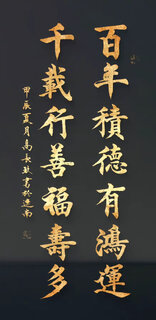 百年積德有鴻運
千載行善福壽多
甲辰夏月高長玖書於迤南